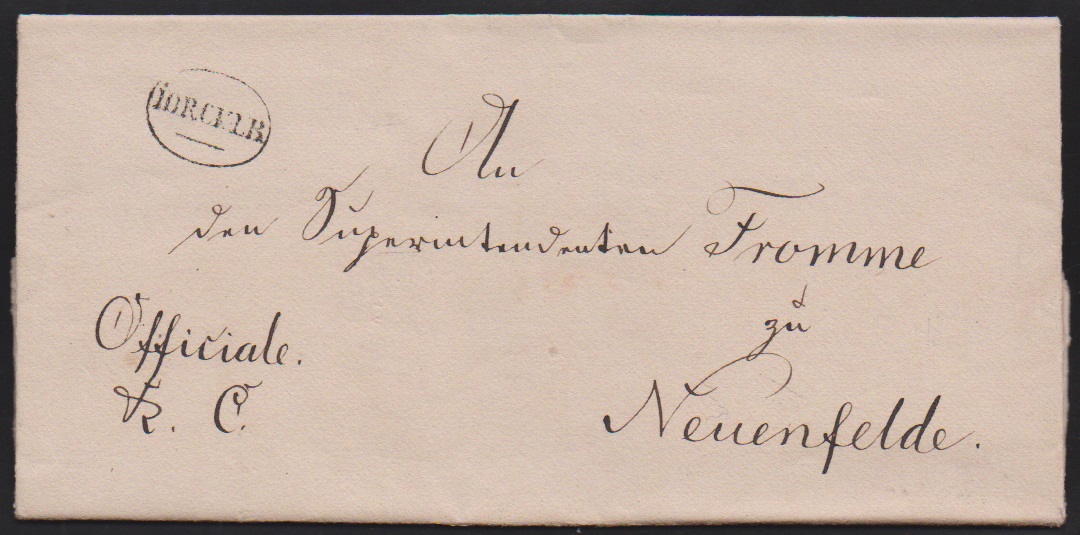 An
den Superintendenten Fromme
zu
Neuenfelde.
Officiale.
K. C.